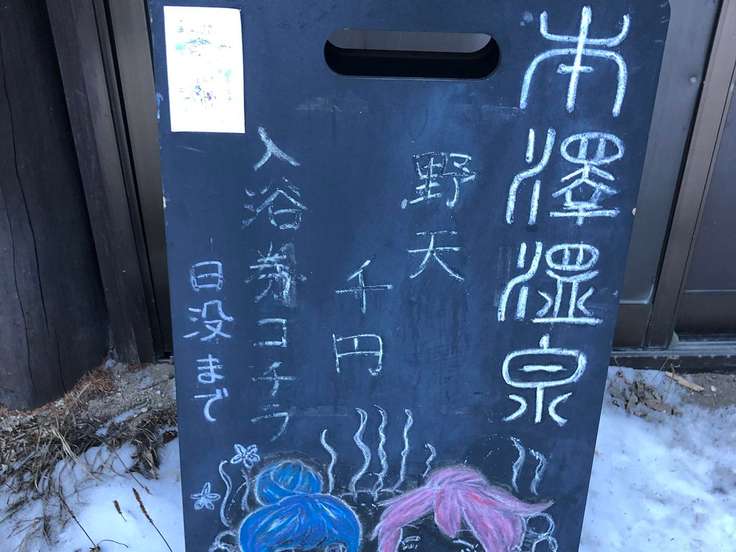 本澤温泉
野天
千円
入浴券コチラ
日没まで